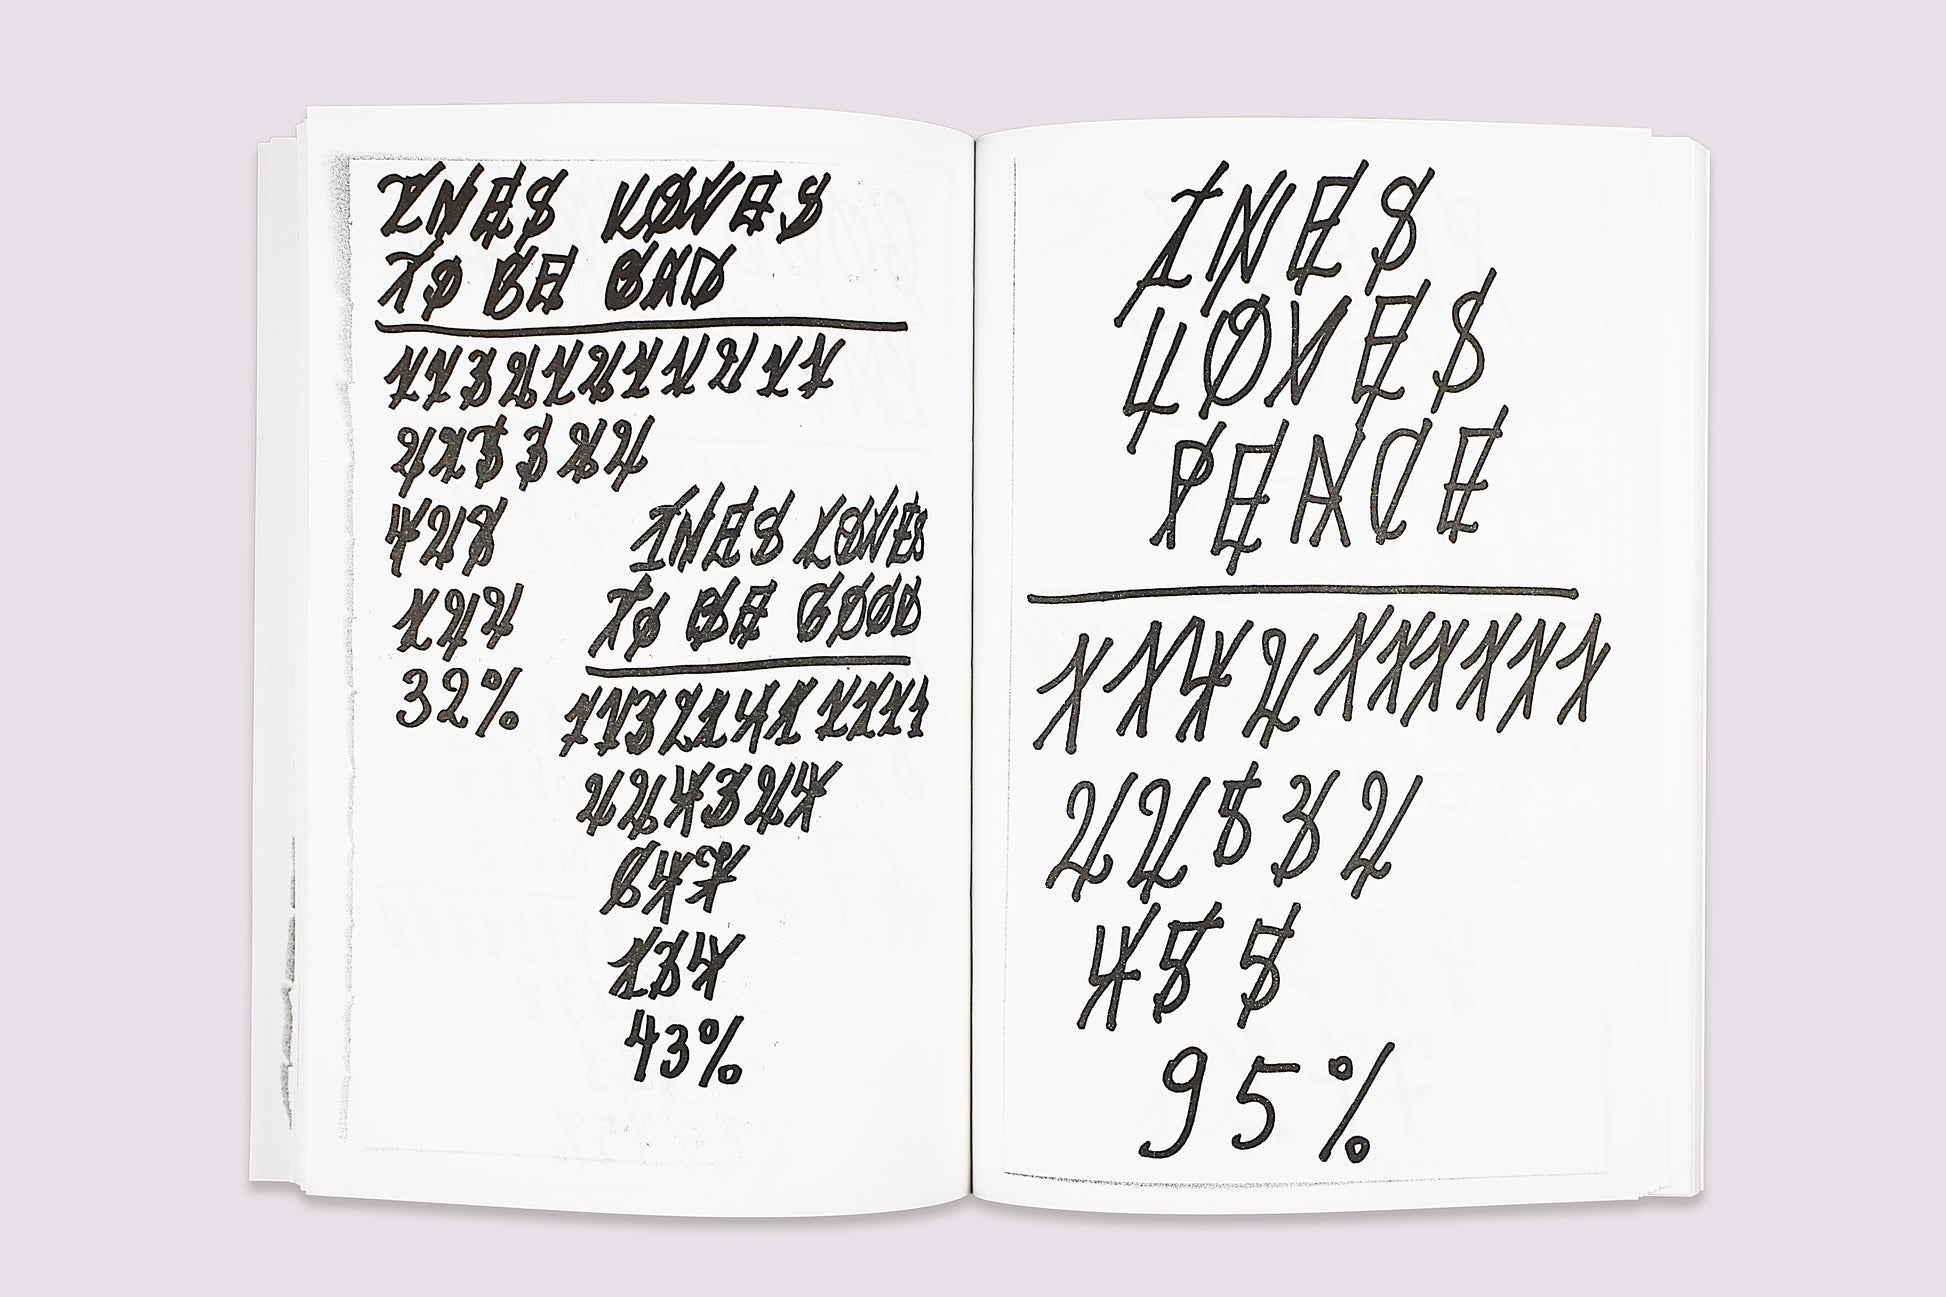 INES LOVES
TO BE BAD
11321211211
225322
428
122
32%
INES LOVES
TO BE GOOD
11321411111
224324
647
134
43%
INES
LOVES
PEACE
1142111111
22532
455
95%